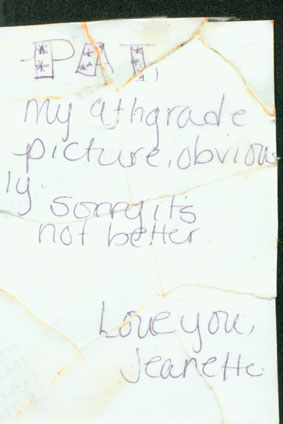 PAT,
My 9thgrade
picture, obvious
ly sorry it's
not better
Love you,
Jeanette